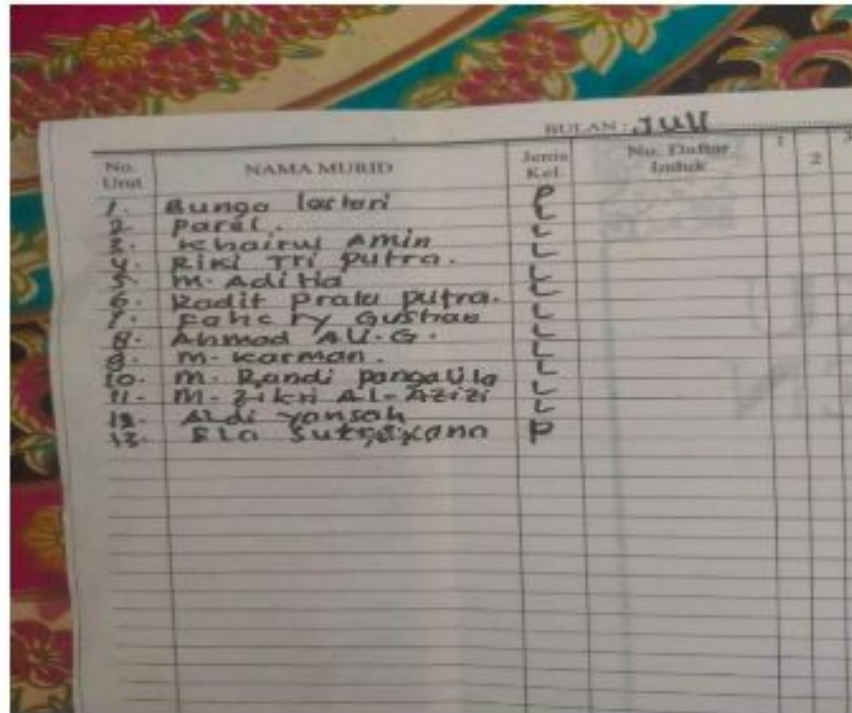 BULAN: JULI
No. Urut NAMA MURID Jenis Kel No. Daftar Induk 1 2 3
1. Bunga lastari P
2 Parel. L
3. Khairul Amin L
4. RIKI TRI PUTRA. L
5 M. Aditia L
6. Radit Prata putra. L
7. Fahcry Gustian L
8. Ahmad ALI.G. L
9. M. Karman. L
10. M. Randi pangalila L
11. M. Zikri AL-AZIZI L
12. Aldi Yansah L
13. ELA P